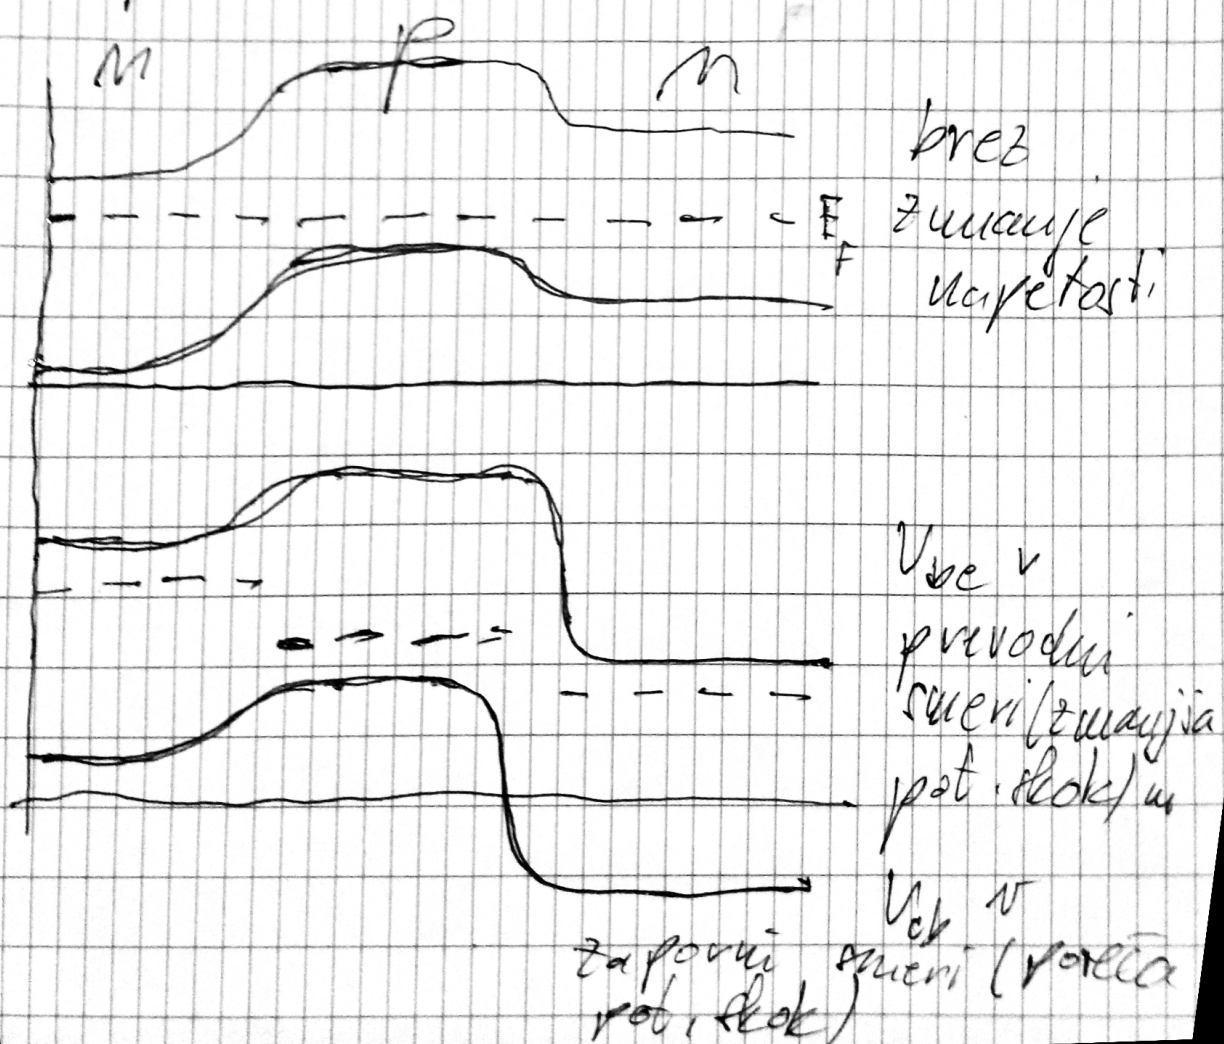 n p n
brez
E_F zunanje
napetosti
V_be v
prevodni
smeri (zmanjša
pot. skok) in
V_cb v
zaporni smeri (poveča
pot. skok)